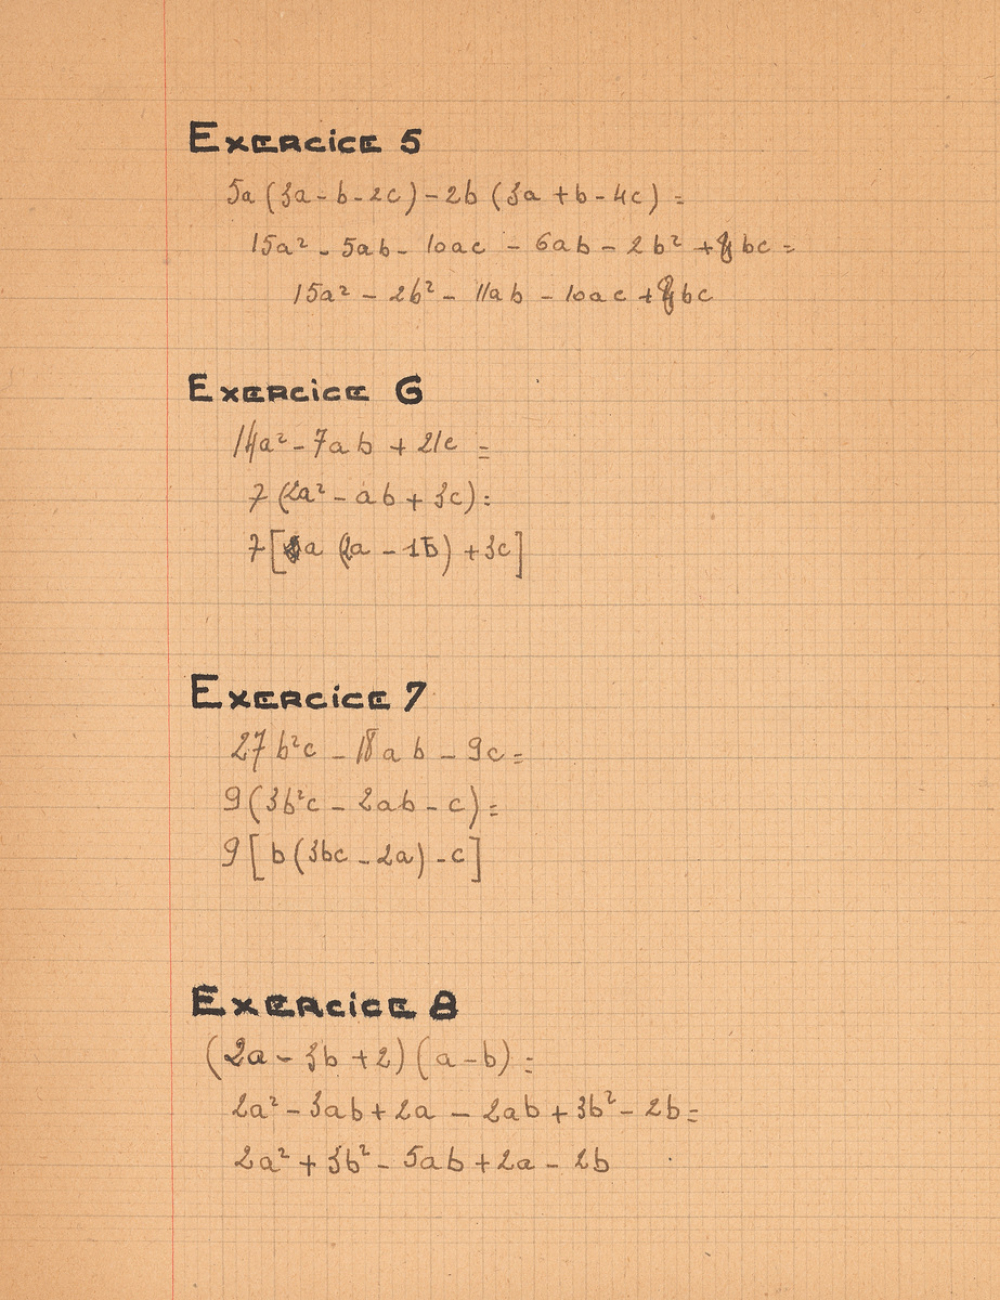 Exercice 5
5a (3a - b - 2c) - 2b (3a + b - 4c) =
15a² - 5ab - 10ac - 6ab - 2b² + 8bc =
15a² - 2b² - 11ab - 10ac + 8bc
Exercice 6
14a² - 7ab + 21c =
7 (2a² - ab + 3c) =
7 [a (2a - 1b) + 3c]
Exercice 7
27b²c - 18ab - 9c =
9 (3b²c - 2ab - c) =
9 [b (3bc - 2a) - c]
Exercice 8
(2a - 3b + 2) (a - b) =
2a² - 3ab + 2a - 2ab + 3b² - 2b =
2a² + 3b² - 5ab + 2a - 2b